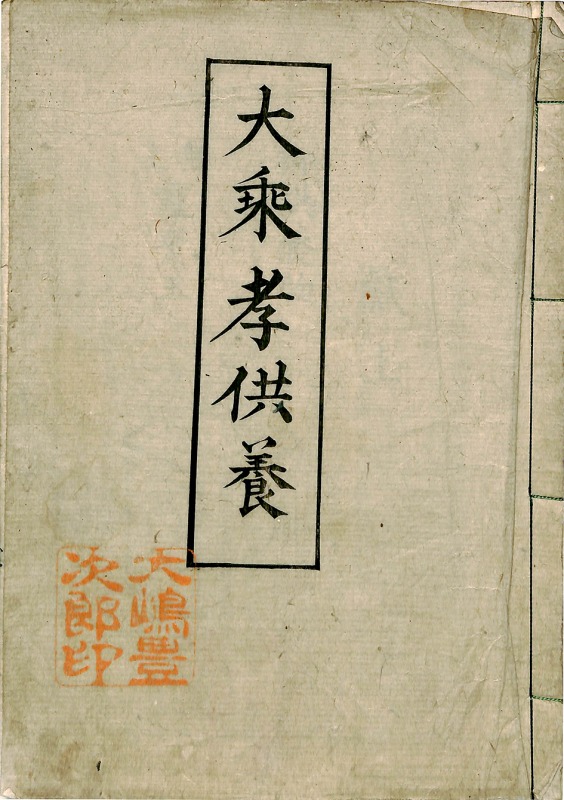 大乘孝供養
大嶋豊
次郎印